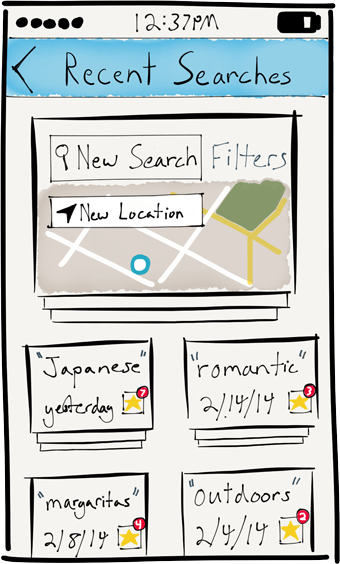 12:37PM
Recent Searches
New Search Filters
New Location
"Japanese"
yesterday 7
"romantic"
2/14/14 3
"margaritas"
2/8/14 4
"outdoors"
2/4/14 2